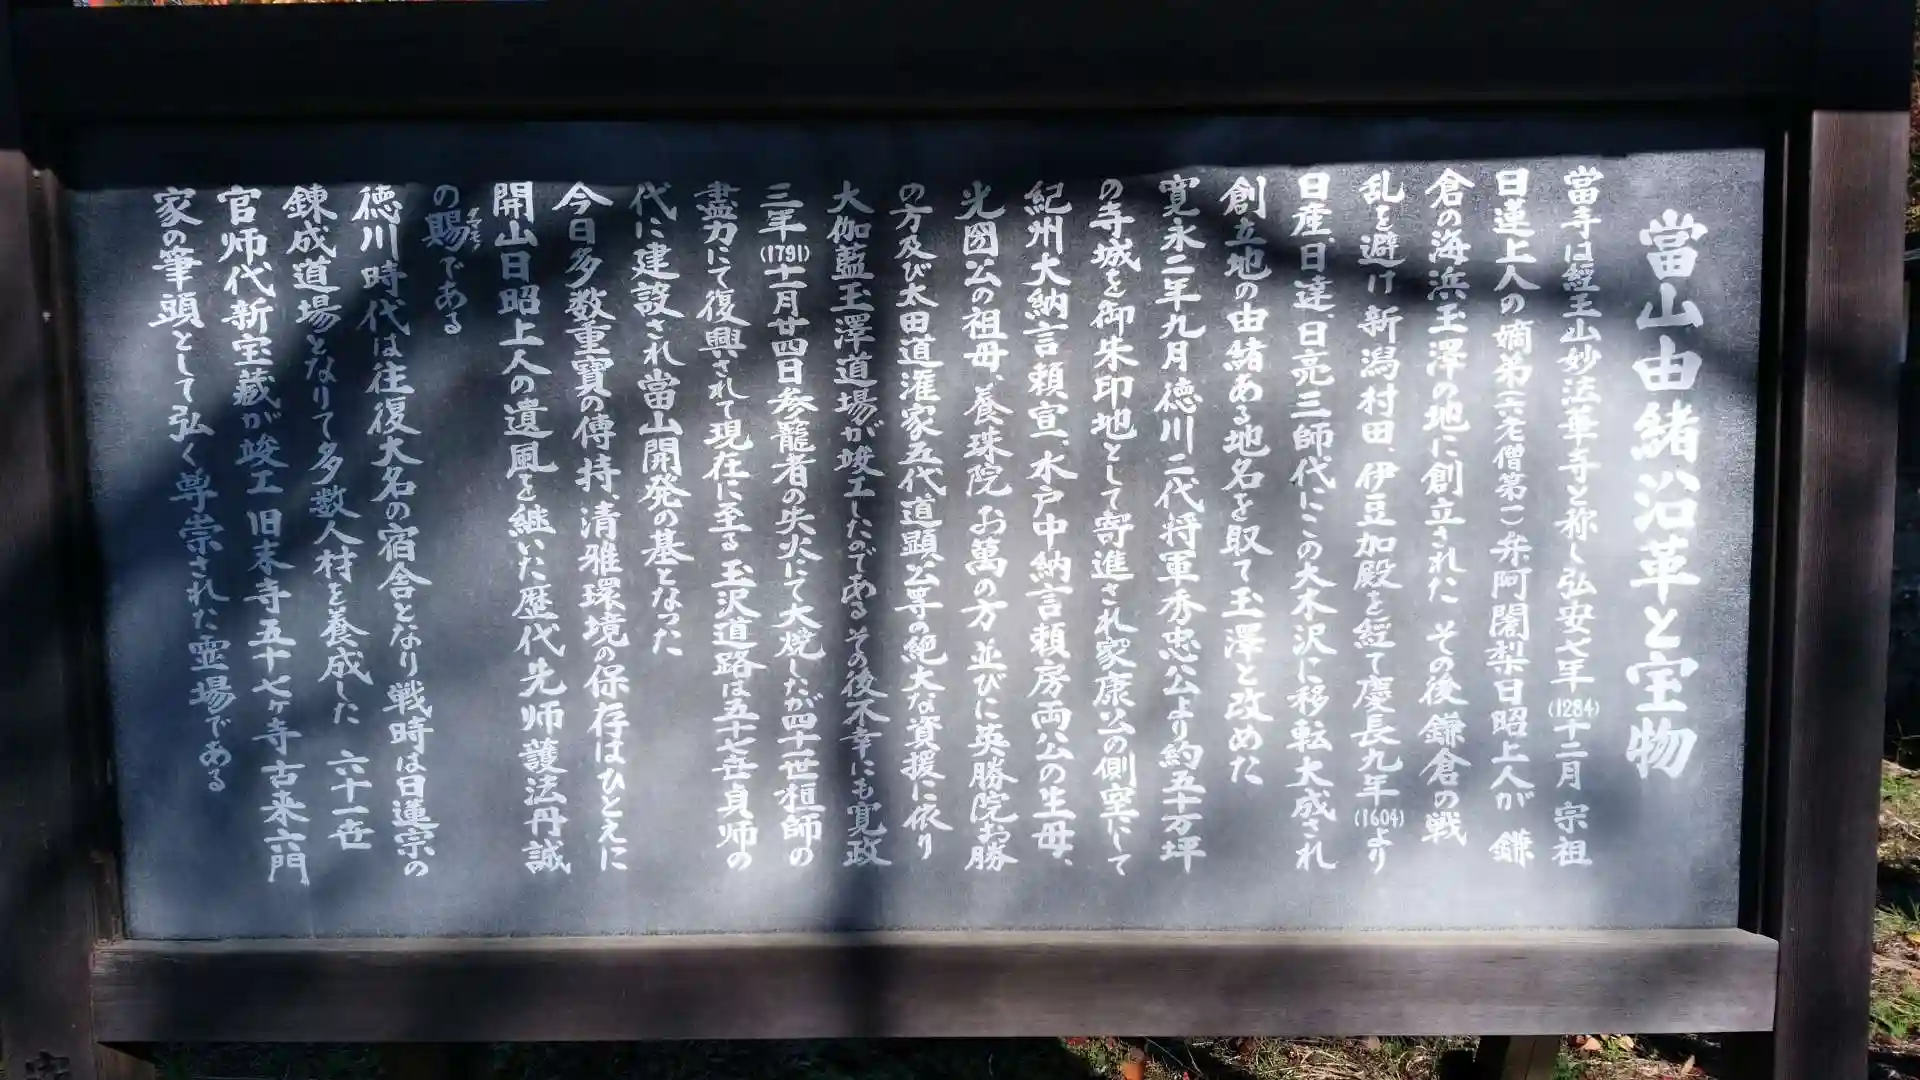 當山由緒沿革と宝物
當寺は經王山妙法華寺と称し弘安七年(1284)十二月 宗祖
日蓮上人の嫡弟(六老僧第一)弁阿闍梨日昭上人が 鎌
倉の海浜玉澤の地に創立された その後鎌倉の戦
乱を避け新潟村田、伊豆加殿を經て慶長九年(1604)より
日産、日達、日亮三師代にこの大木沢に移転大成され
創立地の由緒ある地名を取て玉澤と改めた
寛永二年九月徳川二代将軍秀忠公より約五十万坪
の寺城を御朱印地として寄進され家康公の側室にして
紀州大納言頼宣、水戸中納言頼房両公の生母、
光圀公の祖母、養珠院お萬の方並びに英勝院お勝
の方及び太田道灌家五代道顕公等の絶大な資援に依り
大伽藍玉澤道場が竣工したのである その後不幸にも寛政
三年(1791)十一月廿四日参籠者の失火にて大焼したが四十一世桓師の
盡力にて復興されて現在に至る 玉沢道路は五十七世貞师の
代に建設され當山開発の基となった
今日多数重寶の傳持、清雅環境の保存はひとえに
開山日昭上人の遺風を継いた歴代先师護法丹誠
の賜タマモノである
徳川時代は往復大名の宿舎となり戦時は日蓮宗の
錬成道場となりて多数人材を養成した 六十一世
官师代新宝蔵が竣工 旧末寺五十七ヶ寺古来六門
家の筆頭として弘く尊崇された霊場である